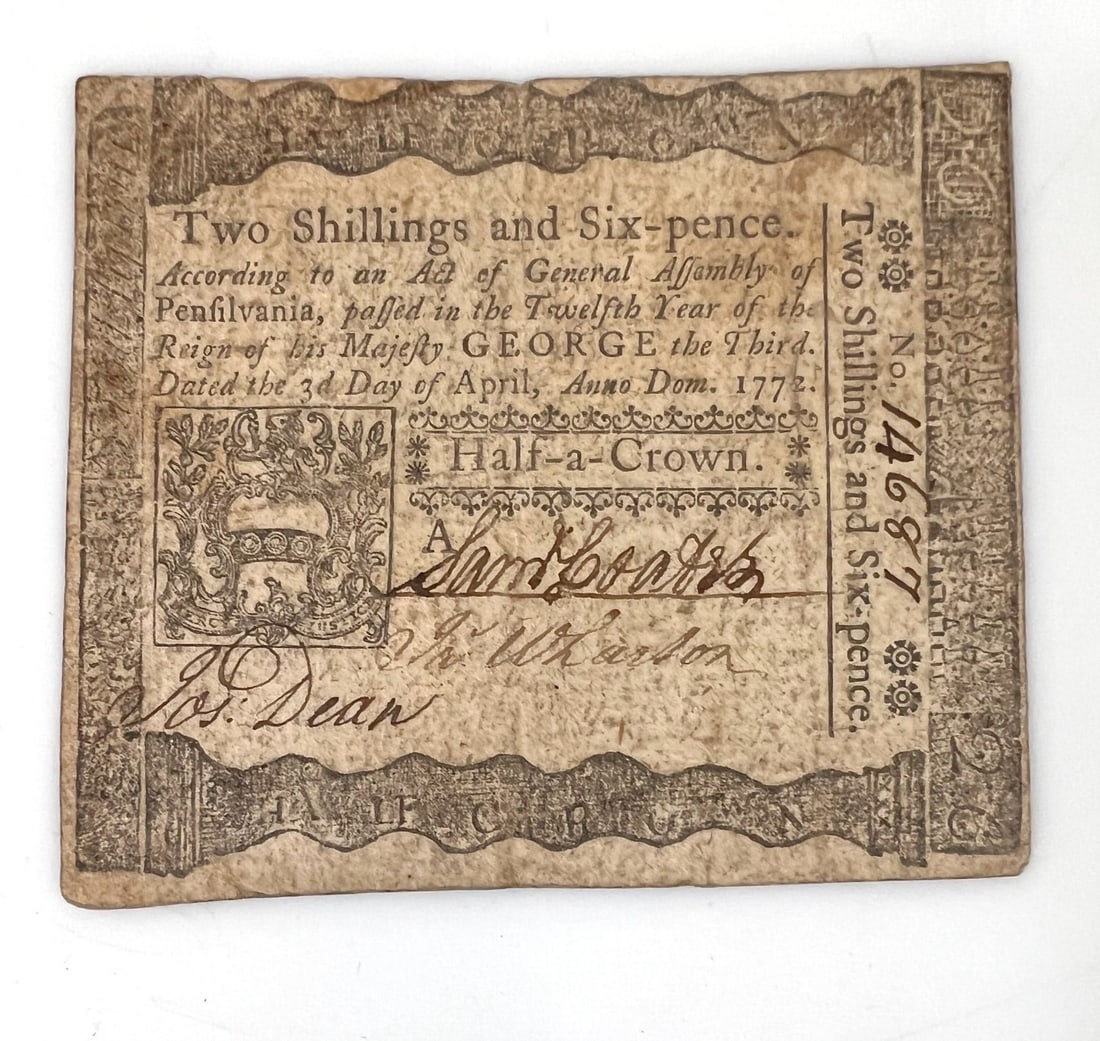 HALF CROWN
Two Shillings and Six-pence.
According to an Act of General Aſſembly of
Penſilvania, paſſed in the Twelfth Year of the
Reign of his Majeſty GEORGE the Third.
Dated the 3d Day of April, Anno Dom. 1772.
Half-a-Crown.
A
Saml Coates
Thos Wharton
Jos: Dean
HALF CROWN
No. 14687
Two Shillings and Six-pence.